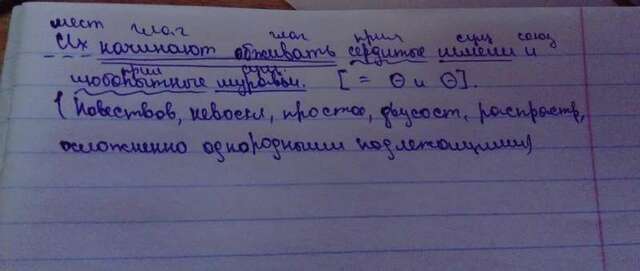 мест глаг глаг прил сущ союз
Их начинают обживать сердитые шмели и
прил сущ.
любопытные муравьи. [ = O и O].
(повествов, невоскл, простое, двусост, распростр,
осложненно однородными подлежащими)